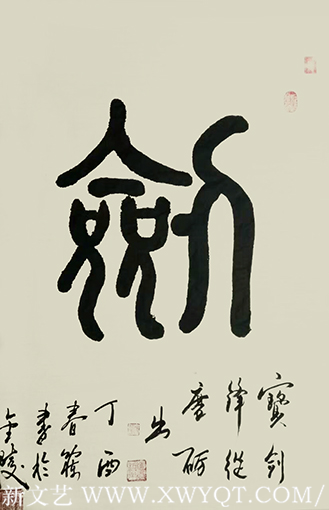 劍
寶剑
锋從
磨砺
出
丁酉
春
書於
金陵
新文艺 WWW.XWYQT.COM/